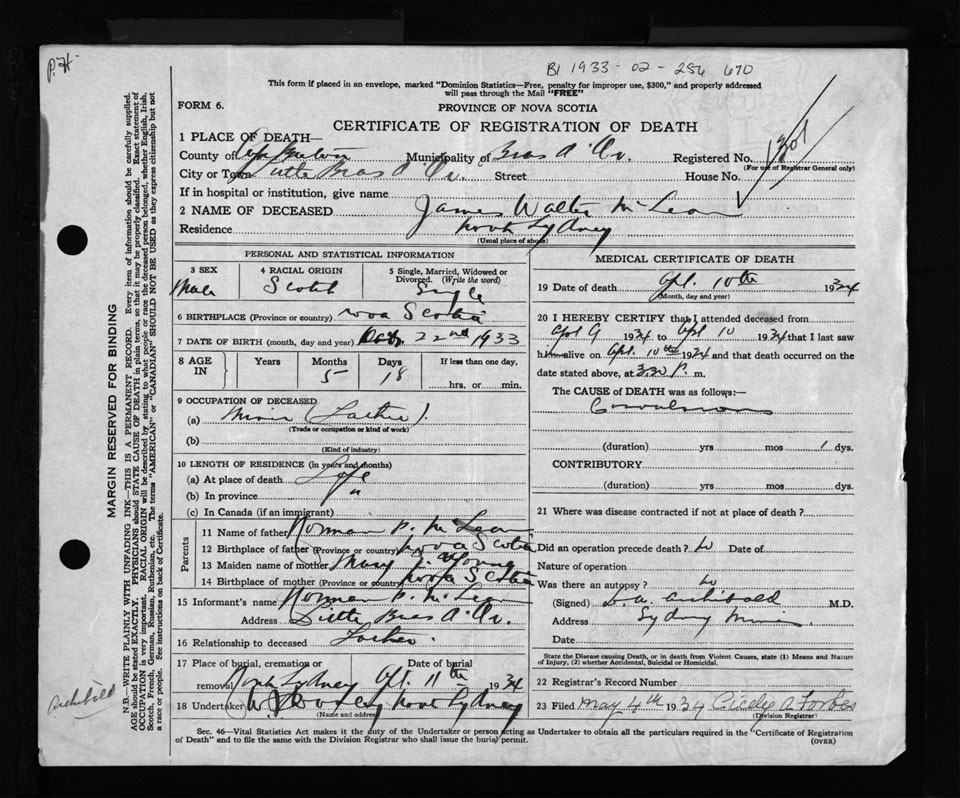 P.H.
B1 1933-02-256 670
This form if placed in an envelope, marked "Dominion Statistics—Free, penalty for improper use, $300," and properly addressed
will pass through the Mail "FREE"
FORM 6.
PROVINCE OF NOVA SCOTIA
CERTIFICATE OF REGISTRATION OF DEATH
1 PLACE OF DEATH—
County of Cape Breton Municipality of Bras d'Or. Registered No. 1301
(For use of Registrar General only)
City or Town Little Bras d'Or. Street House No.
If in hospital or institution, give name
2 NAME OF DECEASED James Walter McLean
Residence North Sydney
(Usual place of abode)
PERSONAL AND STATISTICAL INFORMATION
3 SEX Male
4 RACIAL ORIGIN Scotch
5 Single, Married, Widowed or Divorced. (Write the word) Single
6 BIRTHPLACE (Province or country) Nova Scotia
7 DATE OF BIRTH (month, day and year) 22nd 1933
8 AGE IN Years Months 5 Days 18 If less than one day, hrs. or min.
9 OCCUPATION OF DECEASED
(a) Miner (Father).
(Trade or occupation or kind of work)
(b)
(Kind of industry)
10 LENGTH OF RESIDENCE (in years and months)
(a) At place of death Life
(b) In province "
(c) In Canada (if an immigrant)
Parents
11 Name of father Norman P. McLean
12 Birthplace of father (Province or country) Nova Scotia
13 Maiden name of mother Mary J. Young
14 Birthplace of mother (Province or country) Nova Scotia
15 Informant's name Norman P. McLean
Address Little Bras d'Or.
16 Relationship to deceased Father.
17 Place of burial, cremation or removal North Sydney Date of burial Apl. 11th 1934
18 Undertaker W. J. Dooley North Sydney
(Name and address)
MEDICAL CERTIFICATE OF DEATH
19 Date of death Apl. 10th 1934
(Month, day and year)
20 I HEREBY CERTIFY that I attended deceased from
Apl 9 1934 to Apl 10 1934 that I last saw
him alive on Apl. 10th 1934 and that death occurred on the
date stated above, at 3.30 P. m.
The CAUSE OF DEATH was as follows:—
Convulsions
(duration) yrs mos 1 dys.
CONTRIBUTORY
(duration) yrs mos dys.
21 Where was disease contracted if not at place of death?
Did an operation precede death? No Date of
Nature of operation
Was there an autopsy? No
(Signed) Archibald M.D.
Address Sydney Mines
Date
State the Disease causing Death, or in death from Violent Causes, state (1) Means and Nature
of Injury, (2) whether Accidental, Suicidal or Homicidal.
22 Registrar's Record Number
23 Filed May 4th 1934 Cicely A Forbes
(Division Registrar)
Sec. 46—Vital Statistics Act makes it the duty of the Undertaker or person acting as Undertaker to obtain all the particulars required in the "Certificate of Registration
of Death" and to file the same with the Division Registrar who shall issue the burial permit.
(OVER)
MARGIN RESERVED FOR BINDING
N.B.—WRITE PLAINLY WITH UNFADING INK—THIS IS A PERMANENT RECORD. Every item of information should be carefully supplied.
AGE should be stated EXACTLY. PHYSICIANS should STATE CAUSE OF DEATH in plain terms, so that it may be properly classified. Exact statement of
OCCUPATION is very important. RACIAL ORIGIN will be described by stating to what people or race the deceased person belonged, whether English, Irish,
Scotch, French, German, Russian, Ruthenian, etc. The terms "AMERICAN" or "CANADIAN" SHOULD NOT BE USED as they express citizenship but not
a race or people. See instructions on back of Certificate.
Archibald